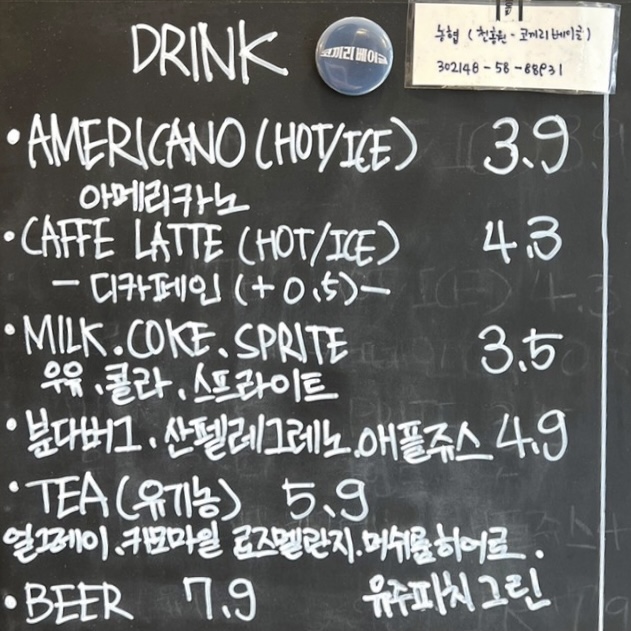 DRINK
코끼리베이글
농협 (천홍원 - 코끼리베이글)
302148-58-88931
• AMERICANO (HOT/ICE) 3.9
아메리카노
• CAFFE LATTE (HOT/ICE) 4.3
- 디카페인 (+0.5) -
• MILK.COKE.SPRITE 3.5
우유.콜라.스프라이트
• 분다버그.산펠레그레노.애플쥬스 4.9
• TEA (유기농) 5.9
얼그레이.카모마일 로즈멜란지.머쉬룸히어로.
유주피치그린
• BEER 7.9